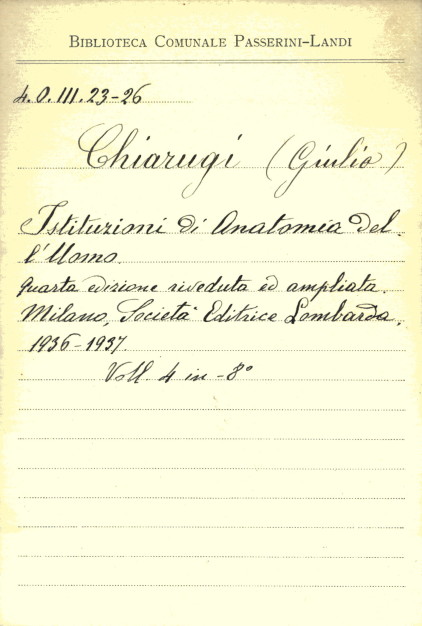 BIBLIOTECA COMUNALE PASSERINI-LANDI
4.O.III.23-26
Chiarugi (Giulio)
Istituzioni di Anatomia del-
l'Uomo.
quarta edizione riveduta ed ampliata.
Milano, Società Editrice Lombarda,
1936-1937
Voll. 4 in-8°